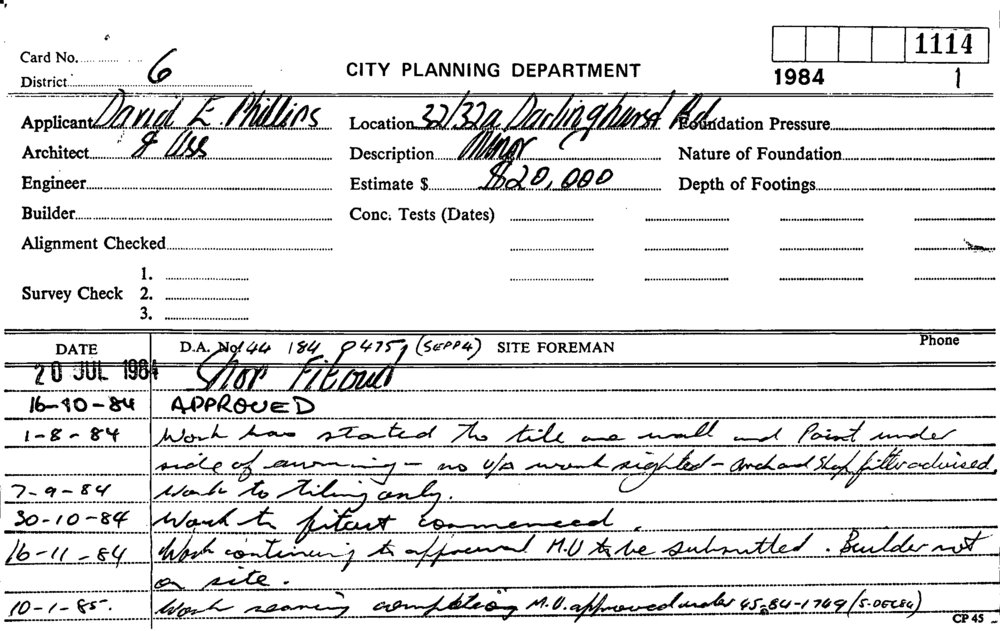 Card No. 6
District
CITY PLANNING DEPARTMENT
1114
1984 1
Applicant David E. Phillips
Location 32/32a Darlinghurst Rd
Foundation Pressure
Architect & Ass
Description Minor
Nature of Foundation
Engineer
Estimate $ $20,000
Depth of Footings
Builder
Conc. Tests (Dates)
Alignment Checked
1.
Survey Check 2.
3.
DATE
D.A. No. 44 184 0475 (SEPP4) SITE FOREMAN
Phone
20 JUL 1984 Shop Fitout
16-10-84 APPROVED
1-8-84 Work has started to tile one wall and Paint under
side of awning - no work sighted - Arch and Shop fitter advised
7-9-84 Work to tiling only.
30-10-84 Work to fitout commenced.
16-11-84 Work continuing to approval M.U to be submitted. Builder not
on site.
10-1-85. Work nearing completion M.U. approved under 45-84-1769 (5-DEC84)
CP 45